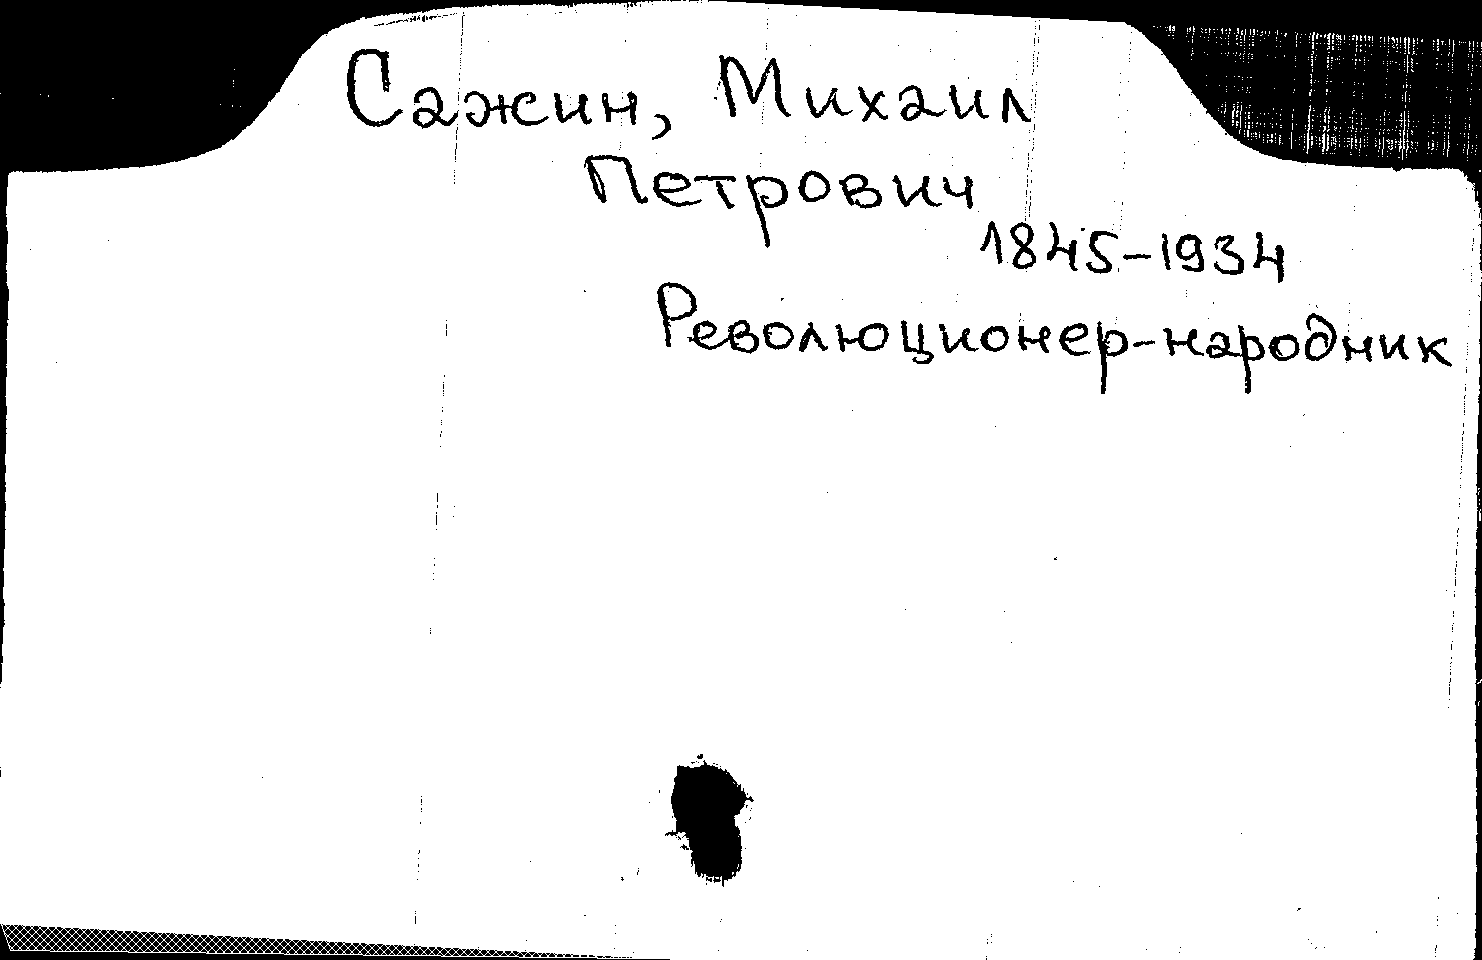 Сажин, Михаил
Петрович
1845-1934
Революционер-народник